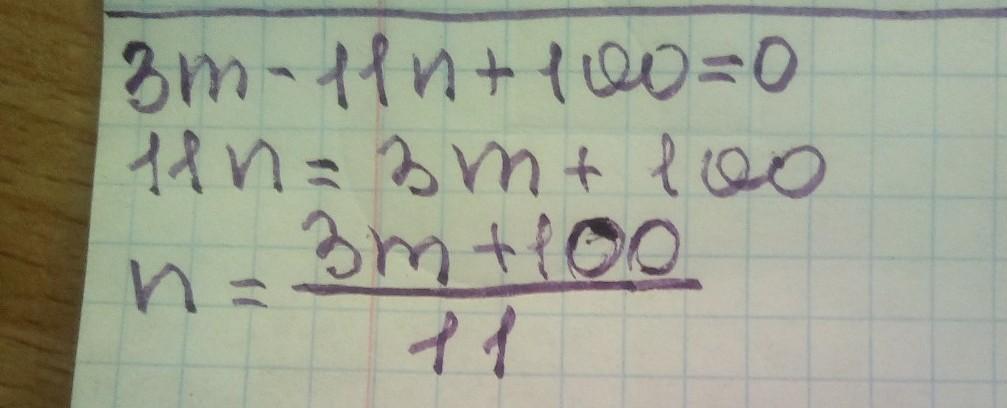 3m-11n+100=0
11n=3m+100
n=\frac{3m+100}{11}